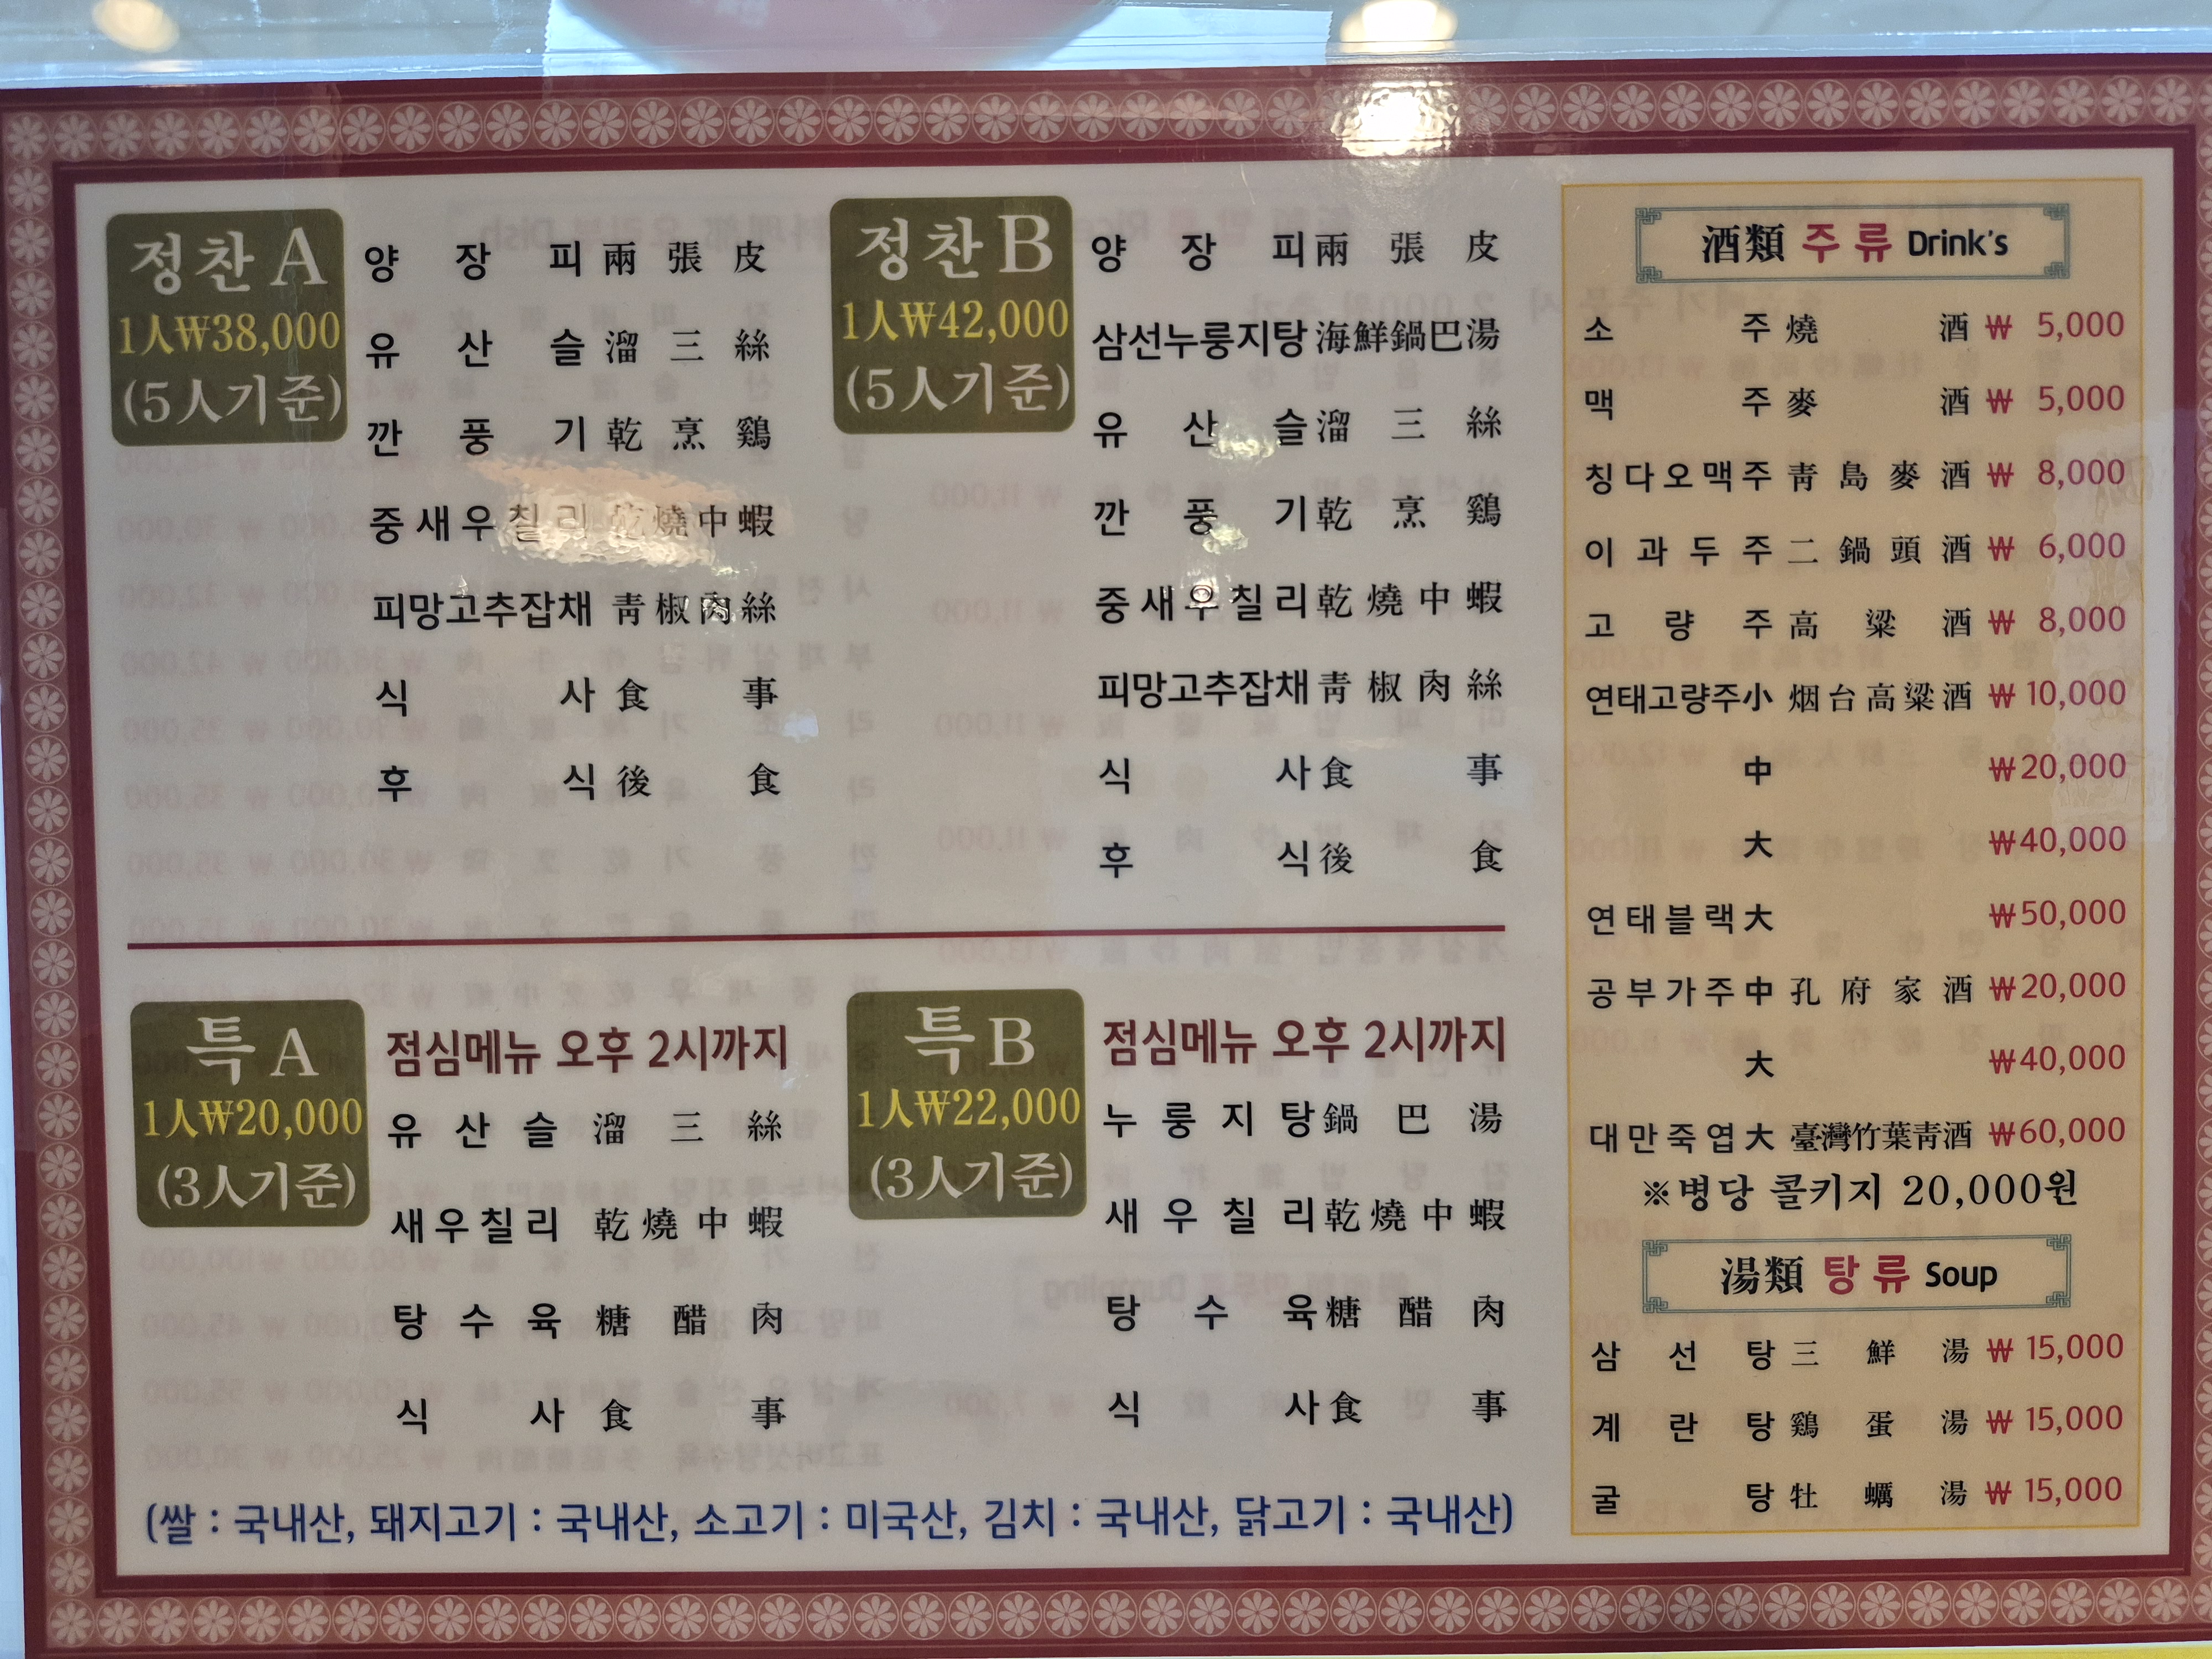 정찬 A
1人₩38,000
(5人기준)
양 장 피 兩 張 皮
유 산 슬 溜 三 絲
깐 풍 기 乾 烹 鷄
중 새 우 칠 리 乾 燒 中 蝦
피망고추잡채 靑 椒 肉 絲
식 사 食 事
후 식 後 食
정찬 B
1人₩42,000
(5人기준)
양 장 피 兩 張 皮
삼선누룽지탕 海鮮鍋巴湯
유 산 슬 溜 三 絲
깐 풍 기 乾 烹 鷄
중 새 우 칠 리 乾 燒 中 蝦
피망고추잡채 靑 椒 肉 絲
식 사 食 事
후 식 後 食
특 A
1人₩20,000
(3人기준)
점심메뉴 오후 2시까지
유 산 슬 溜 三 絲
새 우 칠 리 乾 燒 中 蝦
탕 수 육 糖 醋 肉
식 사 食 事
특 B
1人₩22,000
(3人기준)
점심메뉴 오후 2시까지
누 룽 지 탕 鍋 巴 湯
새 우 칠 리 乾 燒 中 蝦
탕 수 육 糖 醋 肉
식 사 食 事
(쌀 : 국내산, 돼지고기 : 국내산, 소고기 : 미국산, 김치 : 국내산, 닭고기 : 국내산)
酒類 주 류 Drink's
소 주 燒 酒 ₩ 5,000
맥 주 麥 酒 ₩ 5,000
칭다오맥주 靑 島 麥 酒 ₩ 8,000
이 과 두 주 二 鍋 頭 酒 ₩ 6,000
고 량 주 高 粱 酒 ₩ 8,000
연태고량주小 烟台高粱酒 ₩ 10,000
中 ₩20,000
大 ₩40,000
연태블랙大 ₩50,000
공부가주中 孔 府 家 酒 ₩20,000
大 ₩40,000
대만죽엽大 臺灣竹葉靑酒 ₩60,000
※병당 콜키지 20,000원
湯類 탕 류 Soup
삼 선 탕 三 鮮 湯 ₩ 15,000
계 란 탕 鷄 蛋 湯 ₩ 15,000
굴 탕 牡 蠣 湯 ₩ 15,000